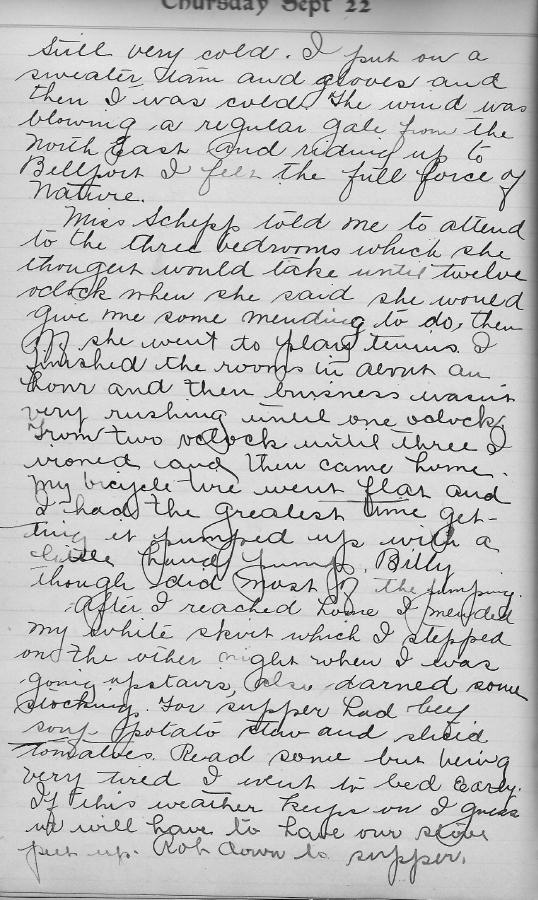 Thursday Sept 22
Still very cold. I put on a
sweater tam and gloves and
then I was cold. The wind was
blowing a regular gale from the
North East and riding up to
Bellport I felt the full force of
Nature.
Miss Schepp told me to attend
to the three bedrooms which she
thought would take until twelve
oclock when she said she would
give me some mending to do, then
she went to play tennis. I
finished the rooms in about an
hour and then business wasn't
very rushing until one oclock.
From two oclock until three I
ironed and then came home.
My bicycle tire went flat and
I had the greatest time get-
ting it pumped up with a
little hand pump. Billy
though did most of the pumping.
After I reached home I mended
my white skirt which I stepped
on the other night when I was
going upstairs, also darned some
stockings. For supper had beef
soup potato stew and sliced
tomatoes. Read some but being
very tired I went to bed early.
If this weather keeps on I guess
we will have to have our stove
put up. Rob down to supper.